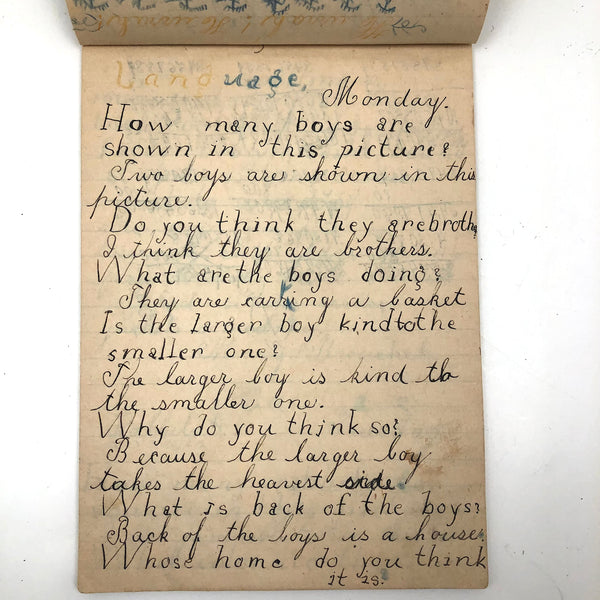 Language,
Monday.
How many boys are
shown in this picture?
Two boys are shown in this
picture.
Do you think they are broth
I think they are brothers.
What are the boys doing?
They are carring a basket
Is the larger boy kind to the
smaller one?
The larger boy is kind to
the smaller one.
Why do you think so?
Because the larger boy
takes the heavest side.
What is back of the boys?
Back of the boys is a house.
Whose home do you think
it is.